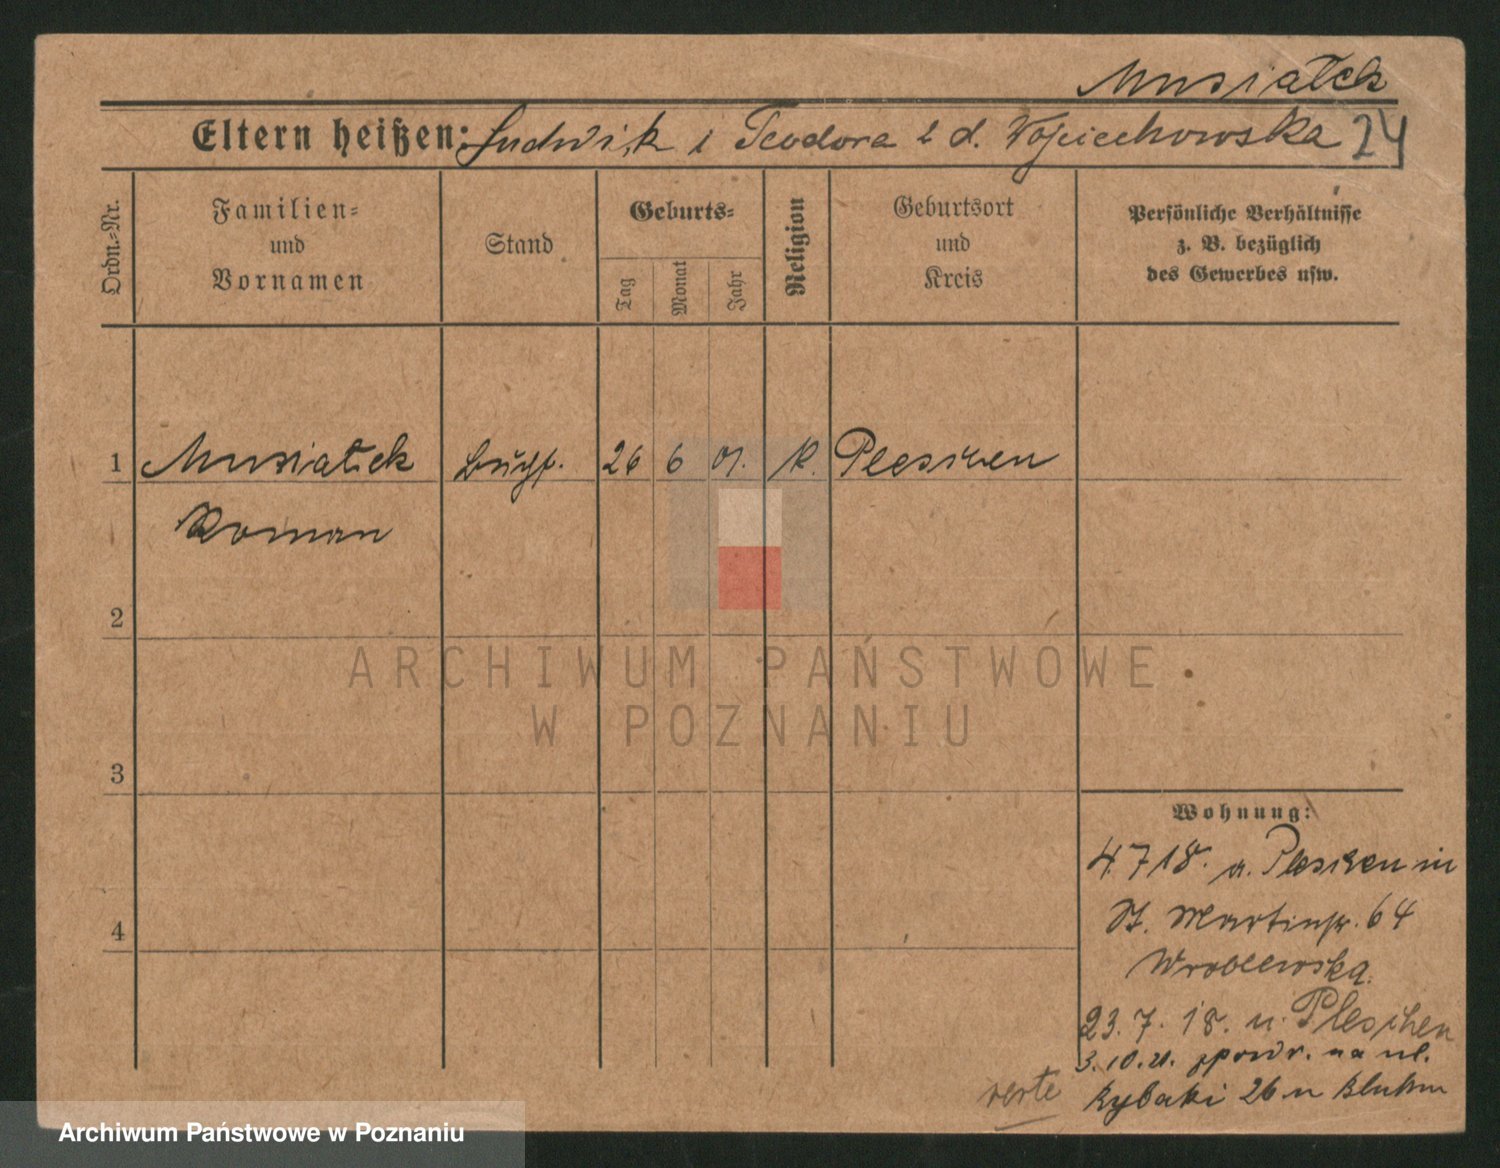 Musiałek
Eltern heißen: Ludwik i Teodora z d. Wojciechowska 24
Ordn.-Nr.
Familien-
und
Vornamen
Stand
Geburts-
Tag
Monat
Jahr
Religion
Geburtsort
und
Kreis
Persönliche Verhältnisse
z. B. bezüglich
des Gewerbes usw.
1 Musiałek 26 6 01. K. Pleschen
Roman
2
3
4
Wohnung:
4.7 18. a. Pleschen in
St. Martinstr. 64
Wroblewska.
23. 7. 18. n. Pleschen
3. 10. 21. z powr. na ul.
Rybaki 26 u Bluhm
verte
ARCHIWUM PAŃSTWOWE
W POZNANIU
Archiwum Państwowe w Poznaniu